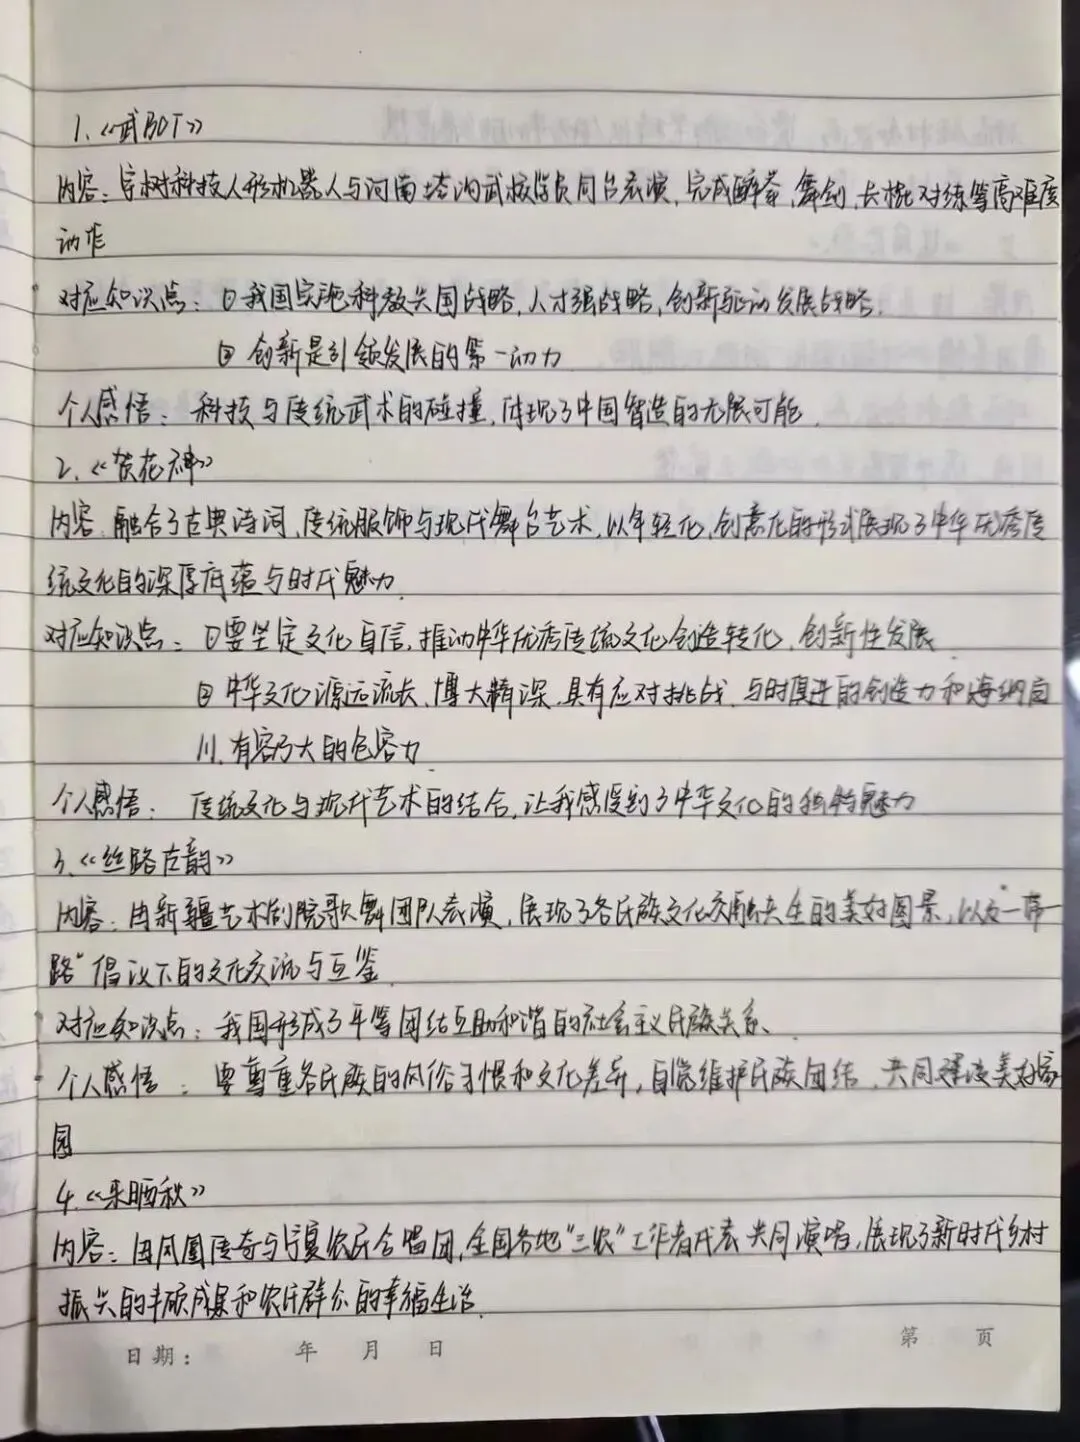 1.《武BOT》
内容：宇树科技人形机器人与河南塔沟武校学员同台表演，完成醉拳，舞剑，长棍对练等高难度
动作
对应知识点：①我国实施科教兴国战略，人才强战略，创新驱动发展战略.
② 创新是引领发展的第一动力
个人感悟：科技与传统武术的碰撞，体现了中国智造的无限可能.
2.《贺花神》
内容：融合了古典诗词，传统服饰与现代舞台艺术，以年轻化，创意化的形式展现了中华优秀传
统文化的深厚底蕴与时代魅力.
对应知识点：①要坚定文化自信，推动中华优秀传统文化创造转化，创新性发展.
② 中华文化源远流长，博大精深，具有应对挑战，与时俱进的创造力和海纳百
川，有容乃大的包容力.
个人感悟：传统文化与现代艺术的结合，让我感受到了中华文化的独特魅力
3.《丝路古韵》
内容：由新疆艺术剧院歌舞团队表演，展现了各民族文化交融共生的美好图景，以及一带一
路”倡议下的文化交流与互鉴.
对应知识点：我国形成了平等团结互助和谐的社会主义民族关系、
个人感悟：要尊重各民族的风俗习惯和文化差异，自觉维护民族团结，共同建设美好家
园
4.《来晒秋》
内容：由凤凰传奇与宁夏农民合唱团，全国各地“三农”工作者代表共同演唱，展现了新时代乡村
振兴的丰硕成果和农民群众的幸福生活.
日期： 年 月 日
第 页